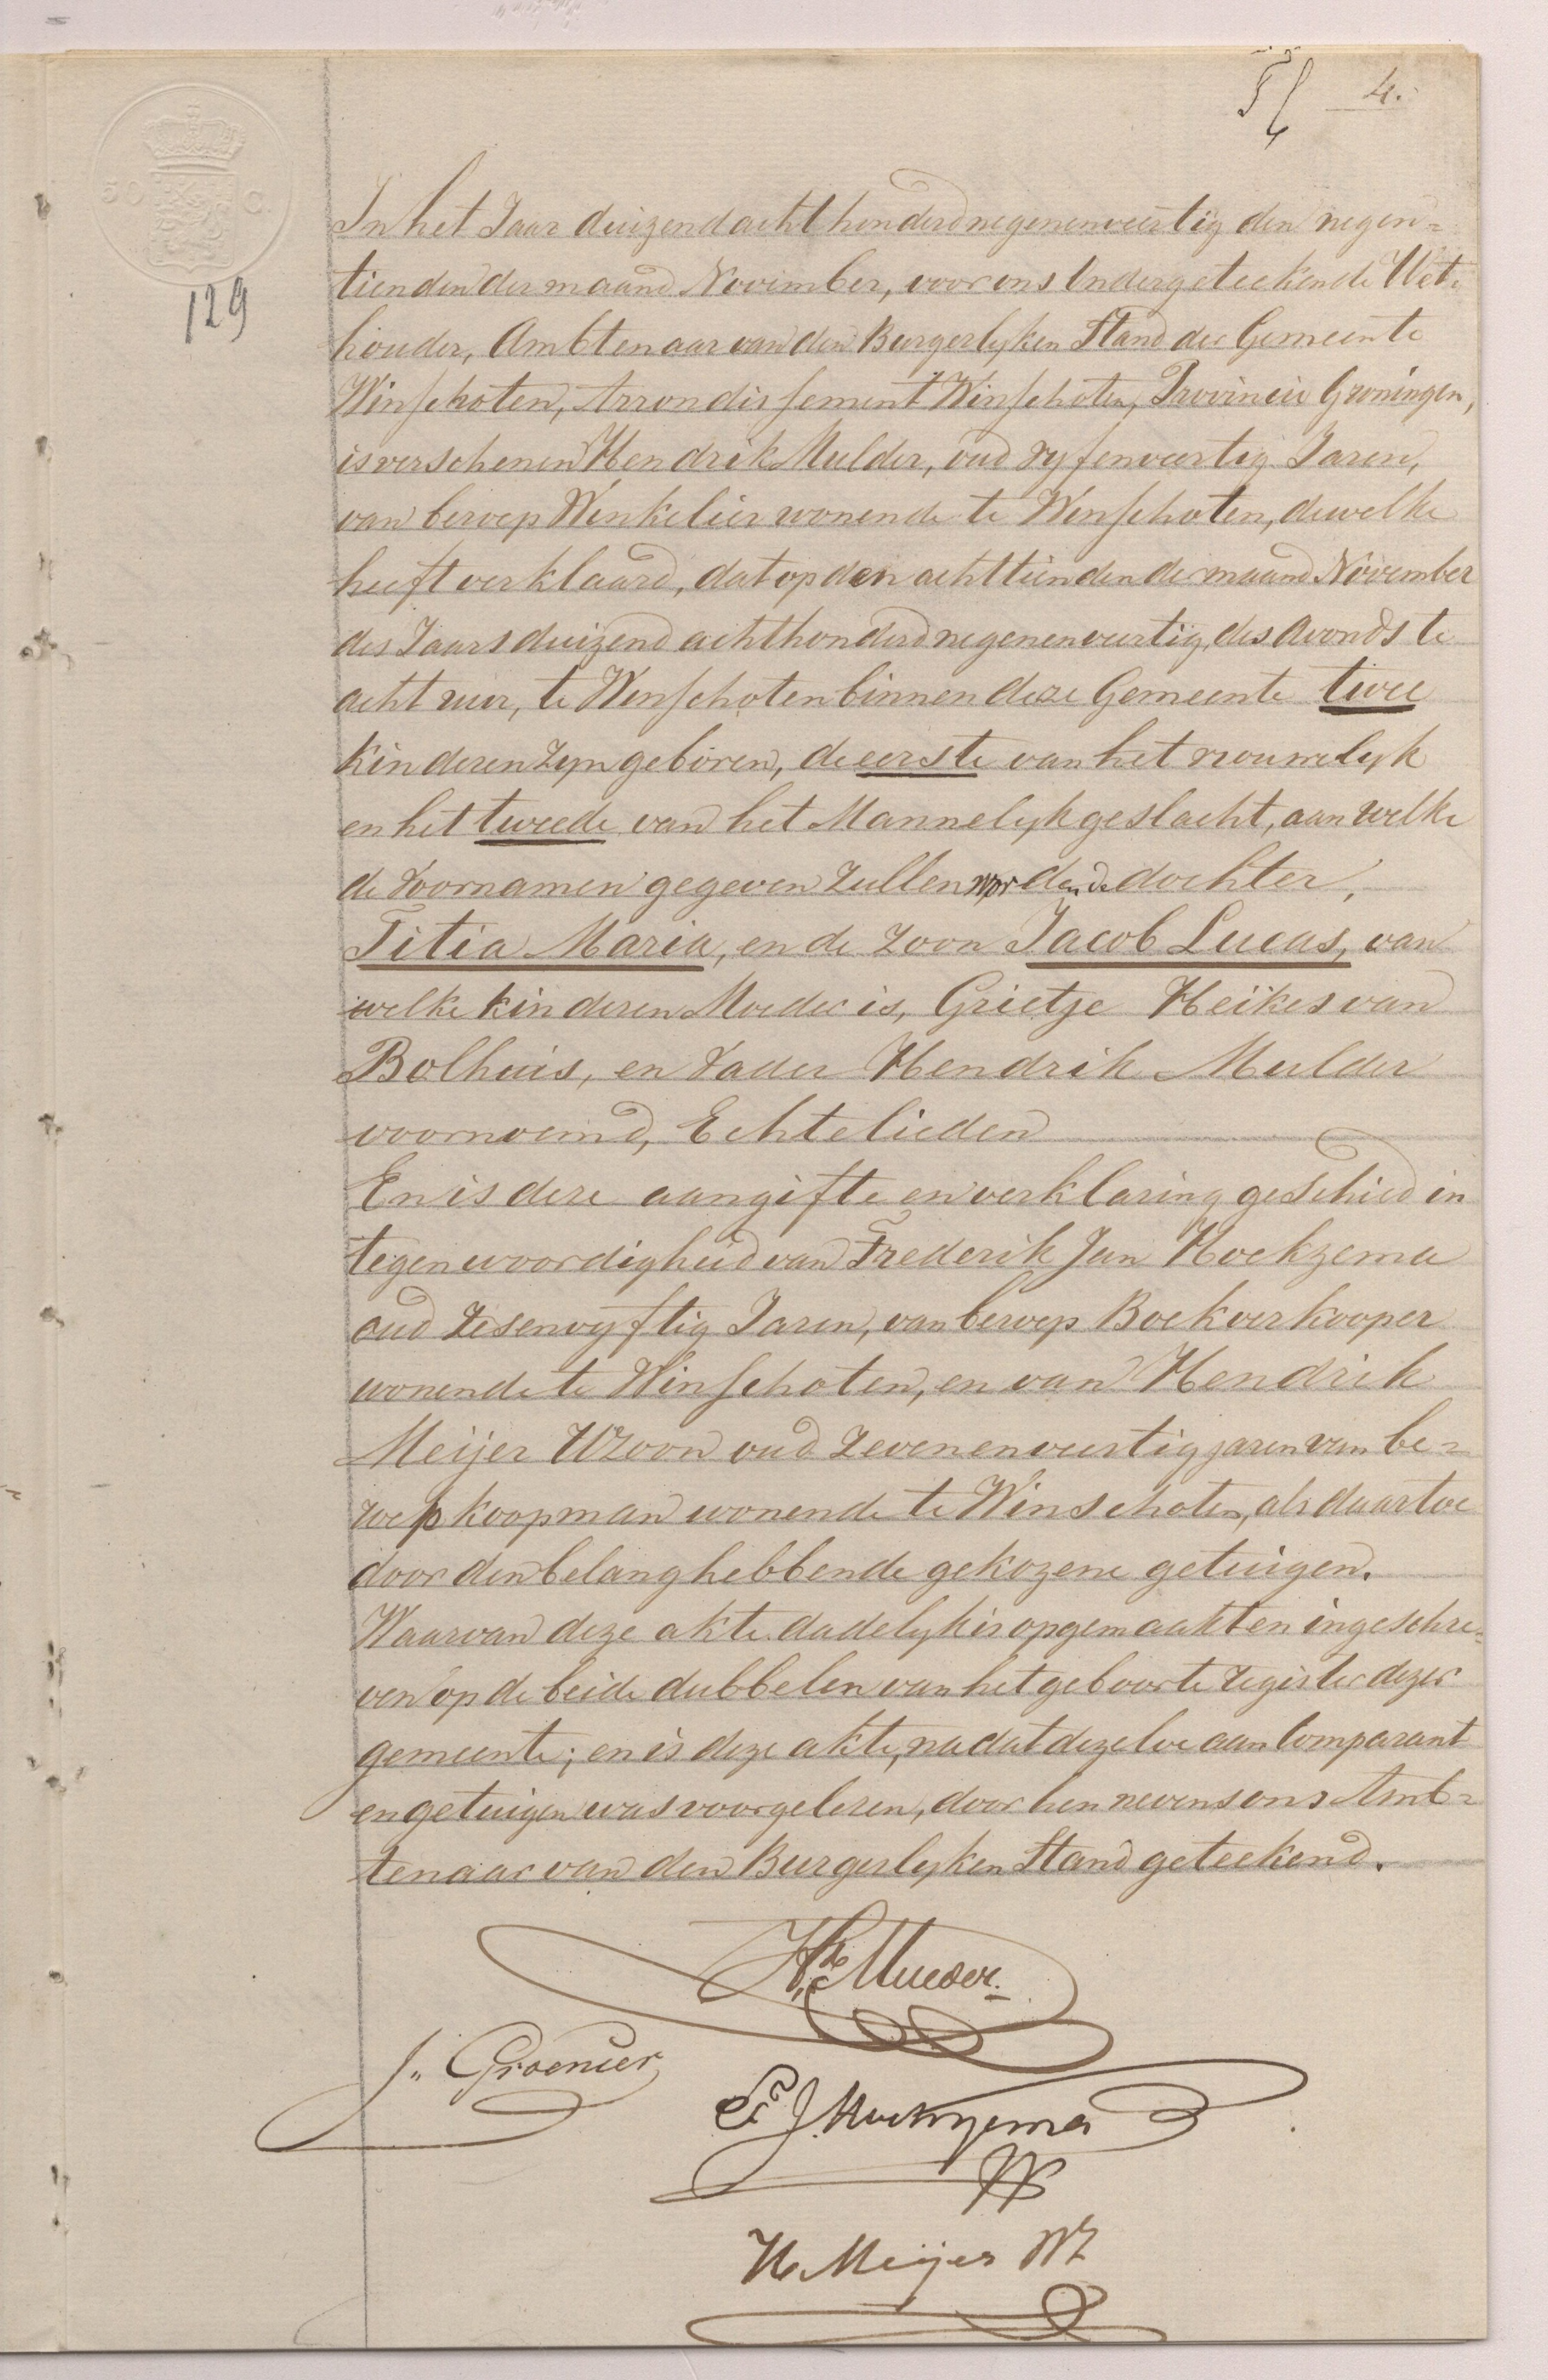 4.
50 C.
129
In het Jaar duizend acht honderd negenenveertig den negen=
tienden der maand November, voor ons Ondergeteekende Wet=
houder, Ambtenaar van den Burgerlyken Stand der Gemeente
Winschoten, Arrondissement Winschoten, Provincie Groningen,
is verschenen Hendrik Mulder, oud vyfenveertig Jaren,
van beroep Winkelier wonende te Winschoten, dewelke
heeft verklaard, dat op den achttienden der maand November
des Jaars duizend achthonderd negenenveertig, des avonds te
acht uur, te Winschoten binnen deze Gemeente twee
kinderen zyn geboren, de eerste van het vrouwelyk
en het tweede van het Mannelyk geslacht, aan welke
de voornamen gegeven zullen worden de dochter,
Titia Maria, en de zoon Jacob Lucas, van
welke kinderen Moeder is, Grietje Heikes van
Bolhuis, en Vader Hendrik Mulder
voornoemd, Echtelieden
En is deze aangifte en verklaring geschied in
tegenwoordigheid van Frederik Jan Hoekzema
oud zesenvyftig Jaren, van beroep Boekverkooper
wonende te Winschoten, en van Hendrik
Meijer Wzoon oud zevenenveertig jaren van be=
roep koopman wonende te Winschoten, als daartoe
door den belanghebbende gekozene getuigen.
Waarvan deze akte dadelyk is opgemaakt en ingeschre=
ven op de beide dubbelen van het geboorte register dezer
gemeente; en is deze akte, nadat dezelve aan Comparant
en getuigen was voorgelezen, door hen nevens ons Amb=
tenaar van den Burgerlyken Stand geteekend.
Hk Mulder.
J. Groenier
F J. Hoekzema
H Meijer WZ